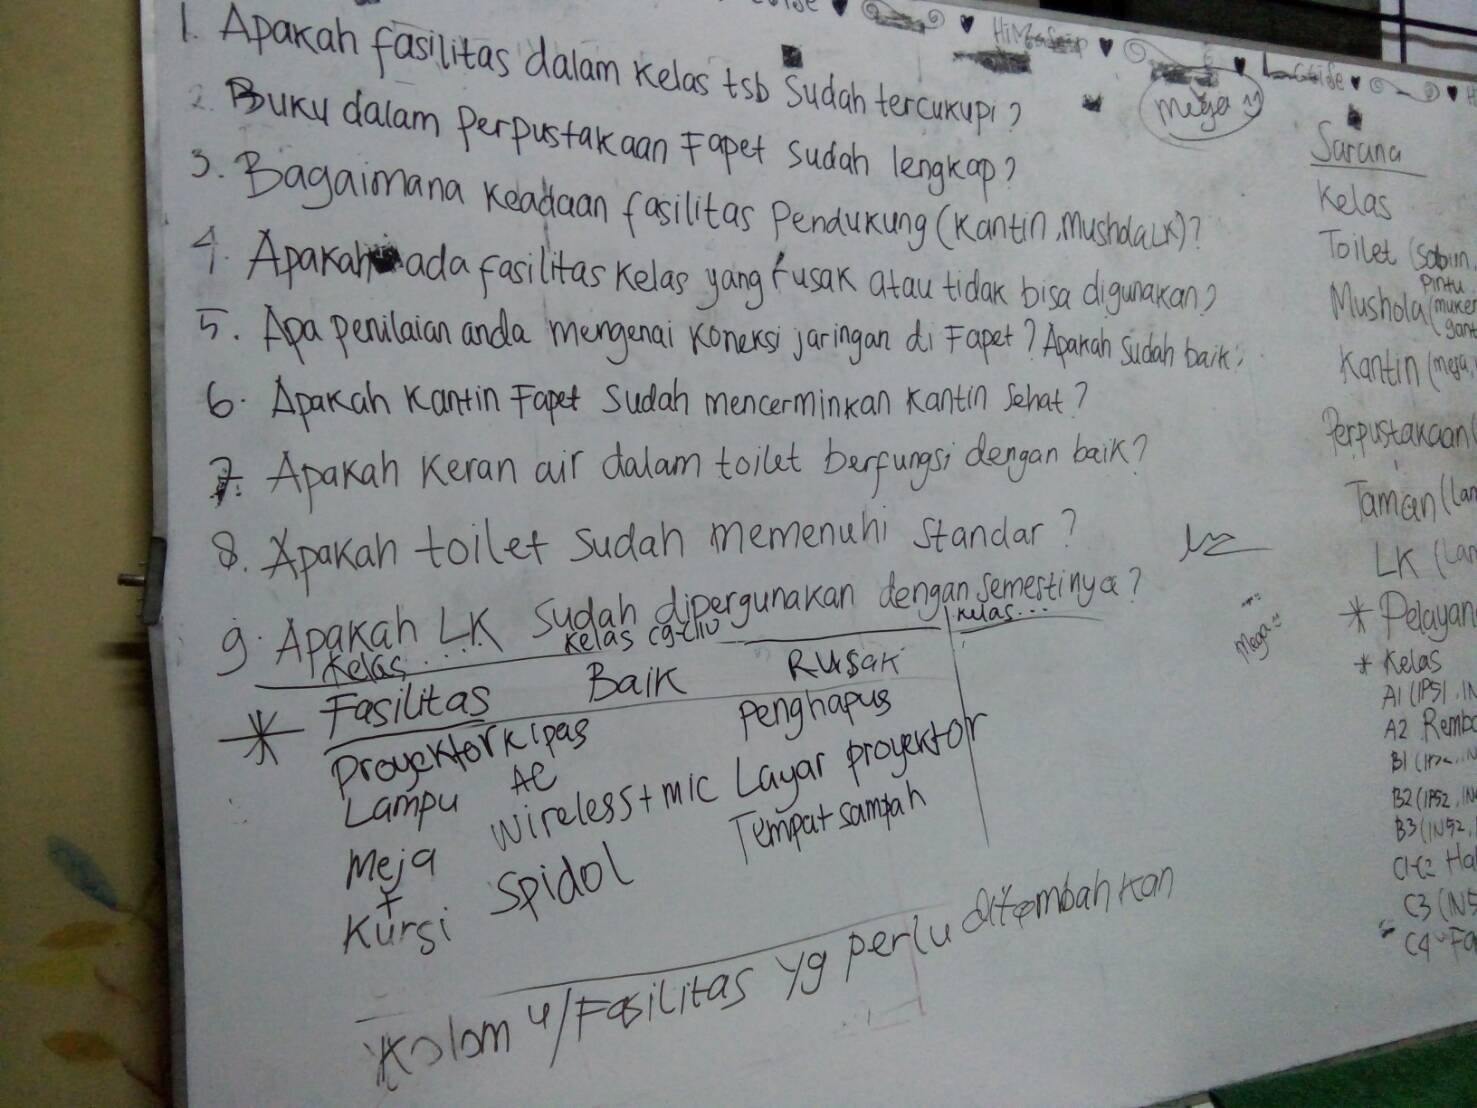 HiMaSep
L-Gtise
mega
1. Apakah fasilitas dalam kelas tsb sudah tercukupi?
2. Buku dalam Perpustakaan Fapet sudah lengkap?
3. Bagaimana keadaan fasilitas Pendukung (Kantin, Mushola, LK)?
4. Apakah ada fasilitas kelas yang rusak atau tidak bisa digunakan?
5. Apa penilaian anda mengenai koneksi jaringan di Fapet? Apakah sudah baik?
6. Apakah Kantin Fapet sudah mencerminkan kantin sehat?
7. Apakah keran air dalam toilet berfungsi dengan baik?
8. Apakah toilet sudah memenuhi standar?
9. Apakah LK sudah dipergunakan dengan semestinya?
Kelas..... Kelas kelas...
Fasilitas Baik Rusak
Proyektor Kipas Penghapus
Lampu AC Layar proyektor
Meja wireless + mic Tempat sampah
+
Kursi Spidol
Kolom u/ Fasilitas yg perlu ditambahkan
Mega
Sarana
Kelas
Toilet (sabun,
Pintu
Mushola (muke
gant
Kantin (meja,
Perpustakaan (
Taman (lam
LK (lam
* Pelayan
* Kelas
A1 (IPS1, IN
A2 Remb
B1
B2 (IPS2, IN
B3 (INS2,
C1-C2 Ha
C3 (INS
C4 Fa